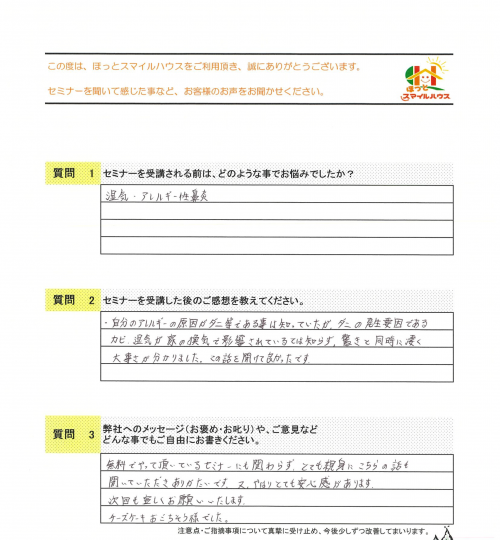 この度は、ほっとスマイルハウスをご利用頂き、誠にありがとうございます。
セミナーを聞いて感じた事など、お客様のお声をお聞かせください。
ほっと
スマイルハウス
質問 1 セミナーを受講される前は、どのような事でお悩みでしたか？
湿気・アレルギー性鼻炎
質問 2 セミナーを受講した後のご感想を教えてください。
・自分のアレルギーの原因がダニ等である事は知っていたが、ダニの発生要因である
カビ、湿気が家の換気で影響されているとは知らず、驚きと同時に凄く
大事さが分かりました。この話を聞けて良かったです。
質問 3 弊社へのメッセージ（お褒め・お叱り）や、ご意見など
どんな事でもご自由にお書きください。
無料でやって頂いているセミナーにも関わらず、とても親身にこちらの話も
聞いていただきありがたいです。又、やはりとても安心感があります。
次回も宜しくお願いいたします。
ケーズケーキおごちそう様でした。
注意点・ご指摘事項について真摯に受け止め、今後少しずつ改善してまいります。